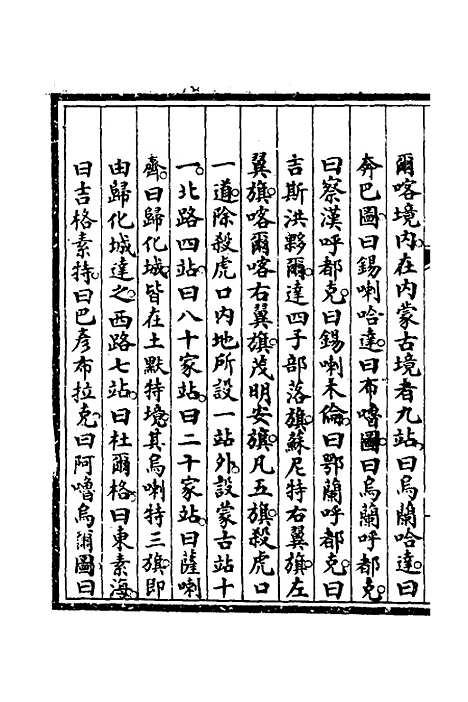 爾喀境內在內蒙古境者九站曰烏蘭哈達曰
奔巴圖曰錫喇哈達曰布嚕圖曰烏蘭呼都克
曰察漢呼都克曰錫喇木倫曰鄂蘭呼都克曰
吉斯洪夥爾達四子部落旗蘇尼特右翼旗左
翼旗喀爾喀右翼旗茂明安旗凡五旗殺虎口
一道除殺虎口內地所設一站外設蒙古站十
一北路四站曰八十家站曰二十家站曰薩喇
齊曰歸化城皆在土默特境其烏喇特三旗即
由歸化城達之西路七站曰杜爾格曰東素海
曰吉格素特曰巴彥布拉克曰阿嚕烏爾圖曰